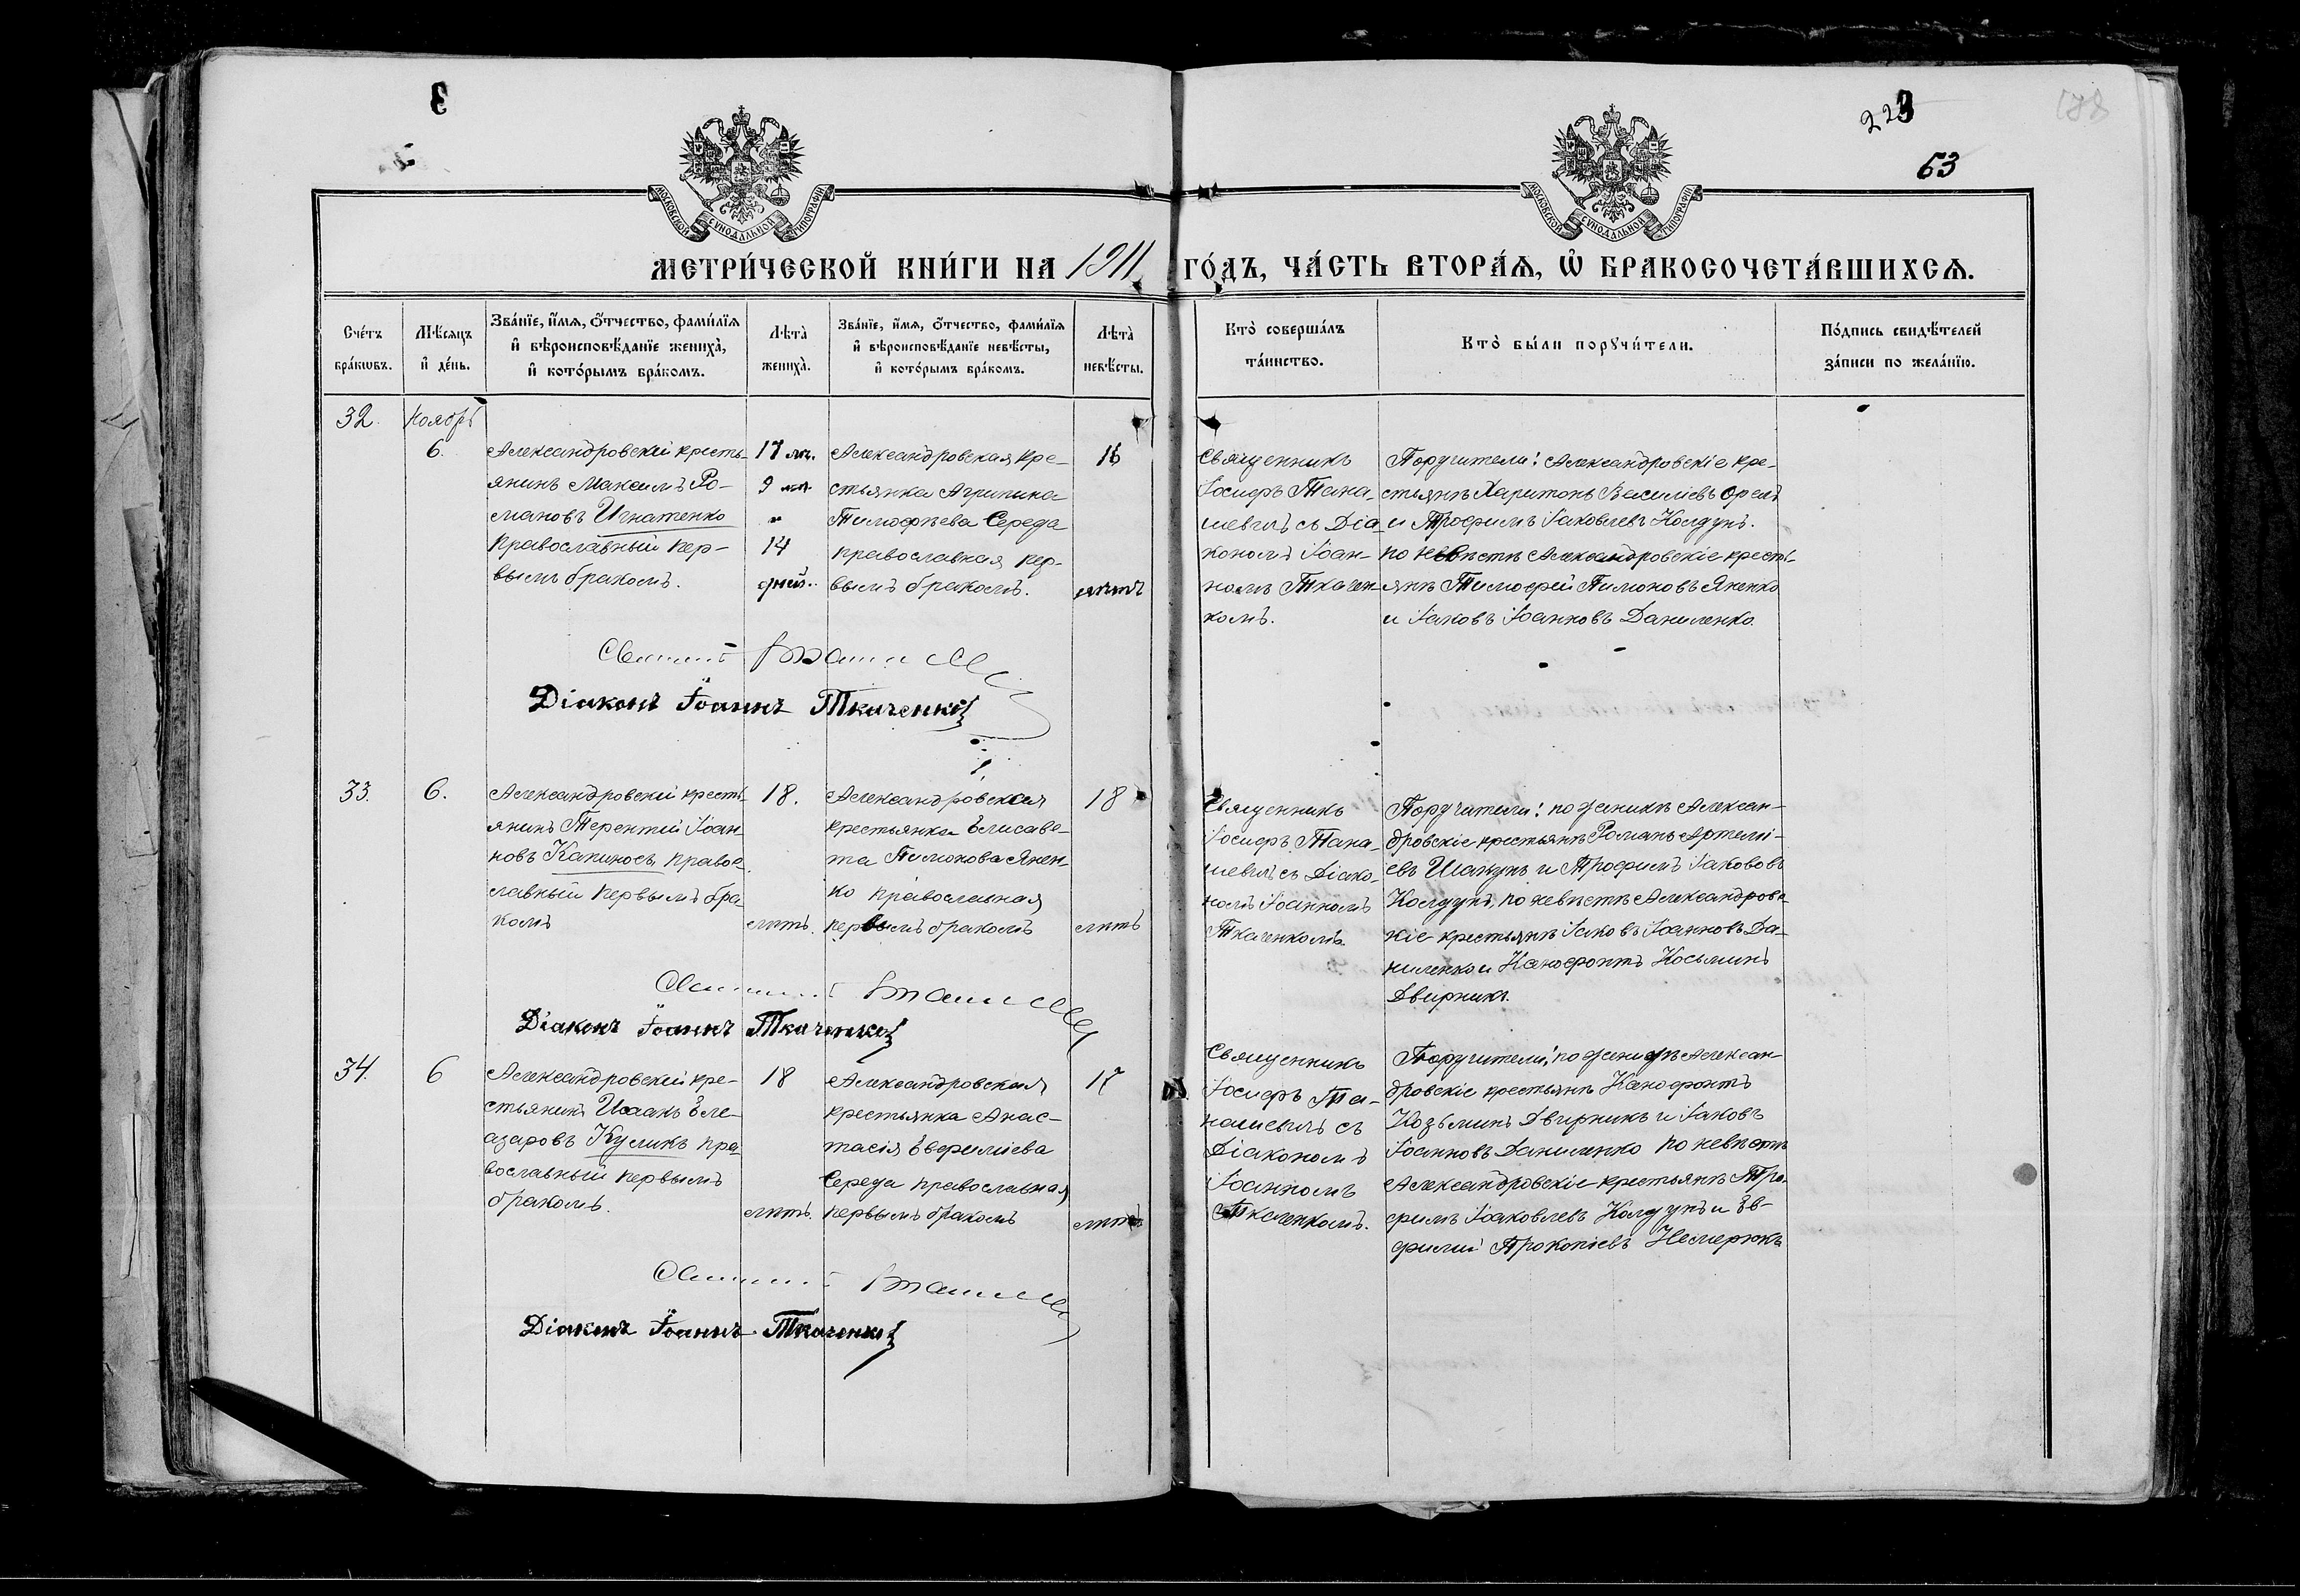 3
223
53
188
МОСКОВСКОЙ СѴНОДАЛЬНОЙ ТИПОГРАФІИ
МОСКОВСКОЙ СѴНОДАЛЬНОЙ ТИПОГРАФІИ
МЕТРИ́ЧЕСКОЙ КНИ́ГИ НА 1911 ГО́ДЪ, ЧА́СТЬ ВТОРА́Ѧ, Ѡ҆ БРАКОСОЧЕТА́ВШИХСѦ.
Сче́тъ
бра́ковъ.
Мѣ́сяцъ
и҆ де́нь.
Зва́нїе, и҆́мѧ, ѻ҆́тчество, фами́лїѧ
и҆ вѣроисповѣ́данїе жениха̀,
и҆ кото́рымъ бра́комъ.
Лѣта̀
жениха̀.
Зва́нїе, и҆́мѧ, ѻ҆́тчество, фами́лїѧ
и҆ вѣроисповѣ́данїе невѣ́сты,
и҆ кото́рымъ бра́комъ.
Лѣта̀
невѣ́сты.
Кто̀ соверша́лъ
та́инство.
Кто̀ бы́ли порꙋчи́тели.
По́дпись свидѣ́телей
за́писи по жела́нїю.
32.
Ноябрь
6.
Александровскій кресть-
янинъ Максимъ Ро-
мановъ Игнатенко
православный пер-
вымъ бракомъ.
17 лѣ.
9 м.
и
14
дней.
Александровская кре-
стьянка Агрипина
Тимофѣева Середа
православная пер-
вымъ бракомъ.
16
лѣтъ
Священникъ
Іосифъ Тана-
шевичъ съ Діа-
кономъ Іоан-
номъ Ткачен-
комъ.
Поручители: Александровскіе кре-
стьянѣ Харитонъ Василіевъ Орелъ
и Трофимъ Іаковлевъ Колдунъ.
по невѣстѣ Александровскіе кресть-
янѣ Тимофей Пимоновъ Яненко
и Іаковъ Іоанновъ Даниленко.
Діаконъ Іоаннъ Ткаченко
33.
6.
Александровскій кресть-
янинъ Терентій Іоан-
новъ Капиносъ, правос-
лавный первымъ бра-
комъ
18.
лѣтъ.
Александровская
крестьянка Елисаве-
та Пимонова Янен-
ко православная
первымъ бракомъ
18
лѣтъ
Священникъ
Іосифъ Тана-
шевичъ съ Діако-
номъ Іоанномъ
Ткаченкомъ.
Поручители: по женихѣ Алексан-
дровскіе крестьянѣ Романъ Артемі-
евъ Шапунъ и Трофимъ Іакововъ
Колдунъ, по невѣстѣ Александровс-
кіе крестьянѣ Іаковъ Іоанновъ Да-
ниленко и Ксенофонтъ Косьминъ
Двирникъ.
Діаконъ Іоаннъ Ткаченко
34.
6
Александровскій кре-
стьянинъ Исаакъ Еле-
азаровъ Куликъ пра-
вославный первымъ
бракомъ.
18
лѣтъ.
Александровская
крестьянка Анас-
тасія Евфиміева
Середа православная
первымъ бракомъ
17
лѣтъ
Священникъ
Іосифъ Та-
нашевичъ съ
Діакономъ
Іоанномъ
Ткаченкомъ.
Поручители: по женихѣ Алексан-
дровскіе крестьянѣ Ксенофонтъ
Козьминъ Двирникъ и Іаковъ
Іоанновъ Даниленко по невѣстѣ
Александровскіе крестьянѣ Тро-
фимъ Іаковлевъ Колдунъ и Ев-
фимій Прокопіевъ
Діаконъ Іоаннъ Ткаченко